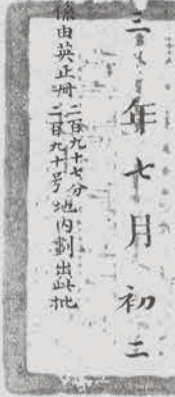 三年七月初三
係由英正冊二百九十七分
二百九十号地内劃出此批